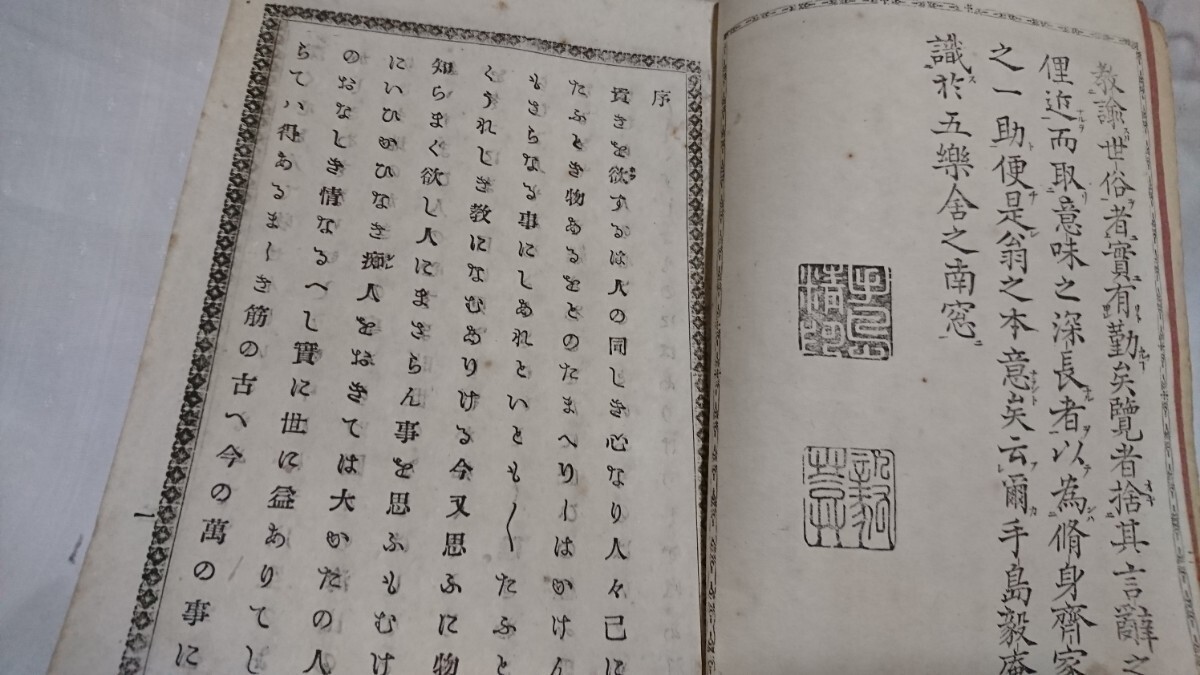 教諭世俗者實有勤矣覽者捨其言辭之
俚近而取意味之深長者以為脩身齊家
之一助便是翁之本意矣云爾手島毅庵
識於五樂舍之南窓
序
貴きを欲するは人の同しき心なり人々己に
たふとき物あるをとのたまへりしはかけん
もさらなる事にしあれといとも〱たふと
くうれしき教になむありける今又思ふに物
知らまく欲し人にまさらん事を思ふもむけ
にいひかひなき痴人をおきては大かたの人
のおなしき情なるへし實に世に益ありてし
らてハ得あるましき筋の古へ今の萬の事に
一